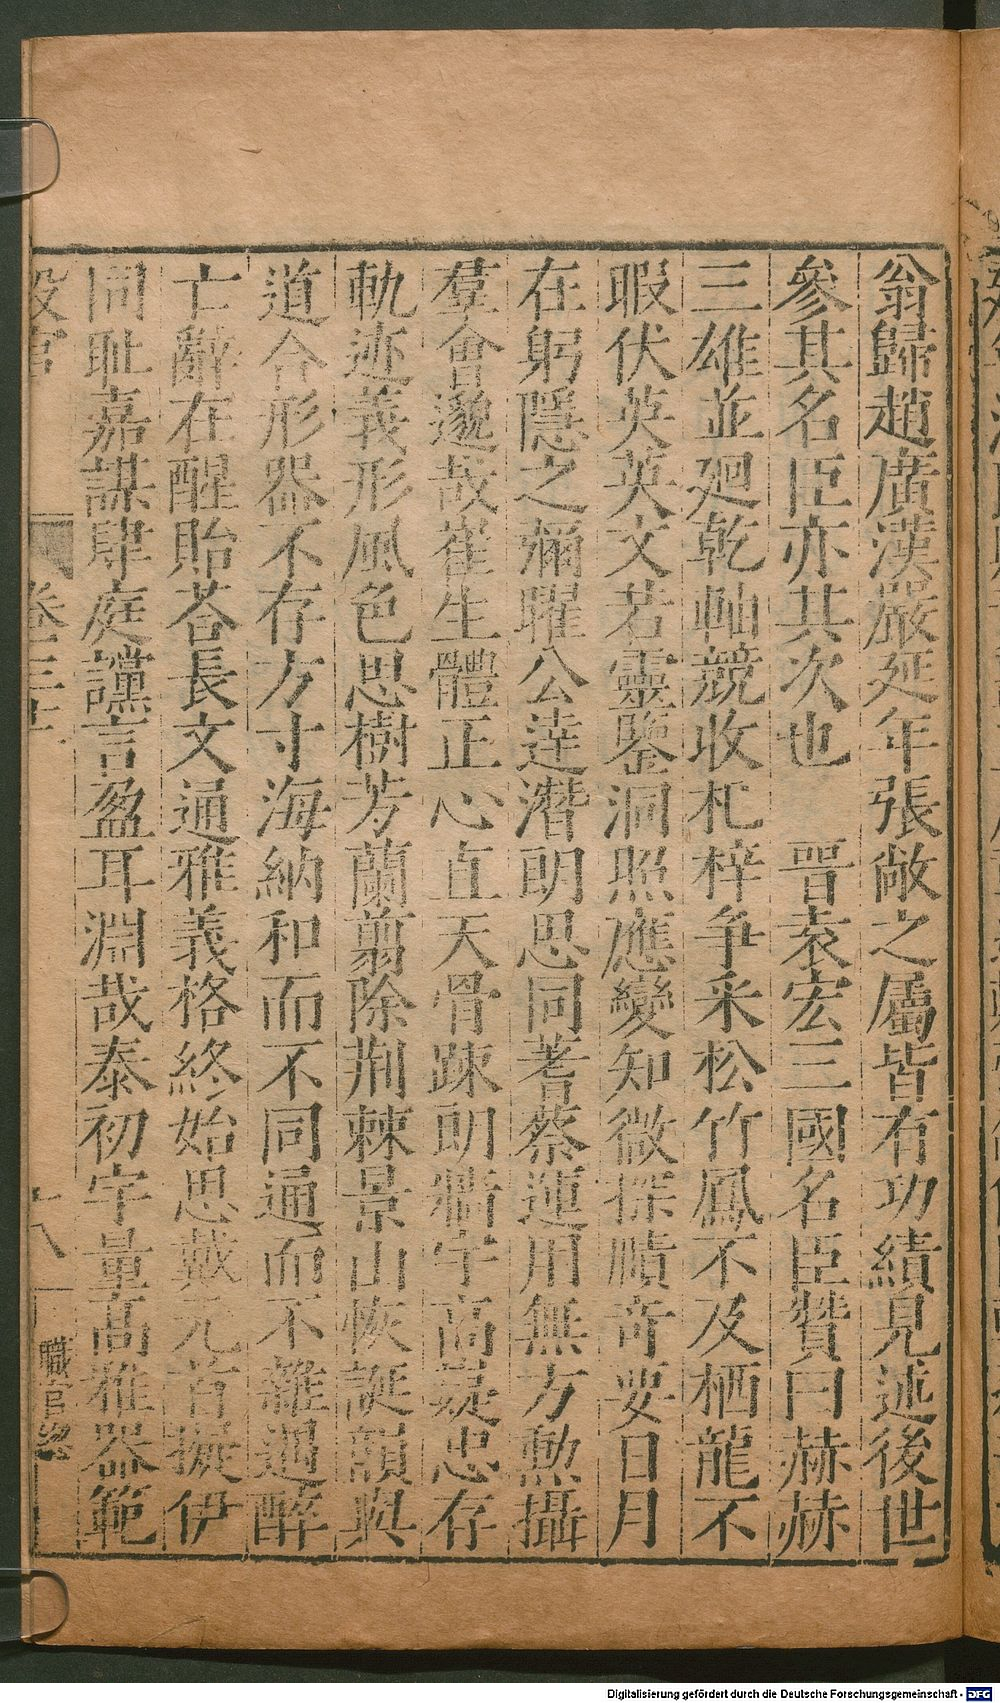 翁歸趙廣漢嚴延年張敞之屬皆有功績見述後世
參其名臣亦其次也　晉袁宏三國名臣贊曰赫赫
三雄並廻乾軸競收杞梓争采松竹鳳不及栖龍不
暇伏英英文若靈鑒洞照應變知微探賾奇要日月
在躬隱之彌曜公達潛朗思同蓍蔡運用無方動攝
羣會邈哉崔生體正心直天骨疎朗牆宇高嶷忠存
軌迹義形風色思樹芳蘭翦除荆棘景山恢誕韻與
道合形器不存方寸海納和而不同通而不雜遇醉
亡辭在醒貽荅長文通雅義格終始思戴元首擬伊
同耻嘉謀肆庭讜言盈耳淵哉泰初宇量高雅器範
設官
卷三十
十八
職官終
Digitalisierung gefördert durch die Deutsche Forschungsgemeinschaft - DFG